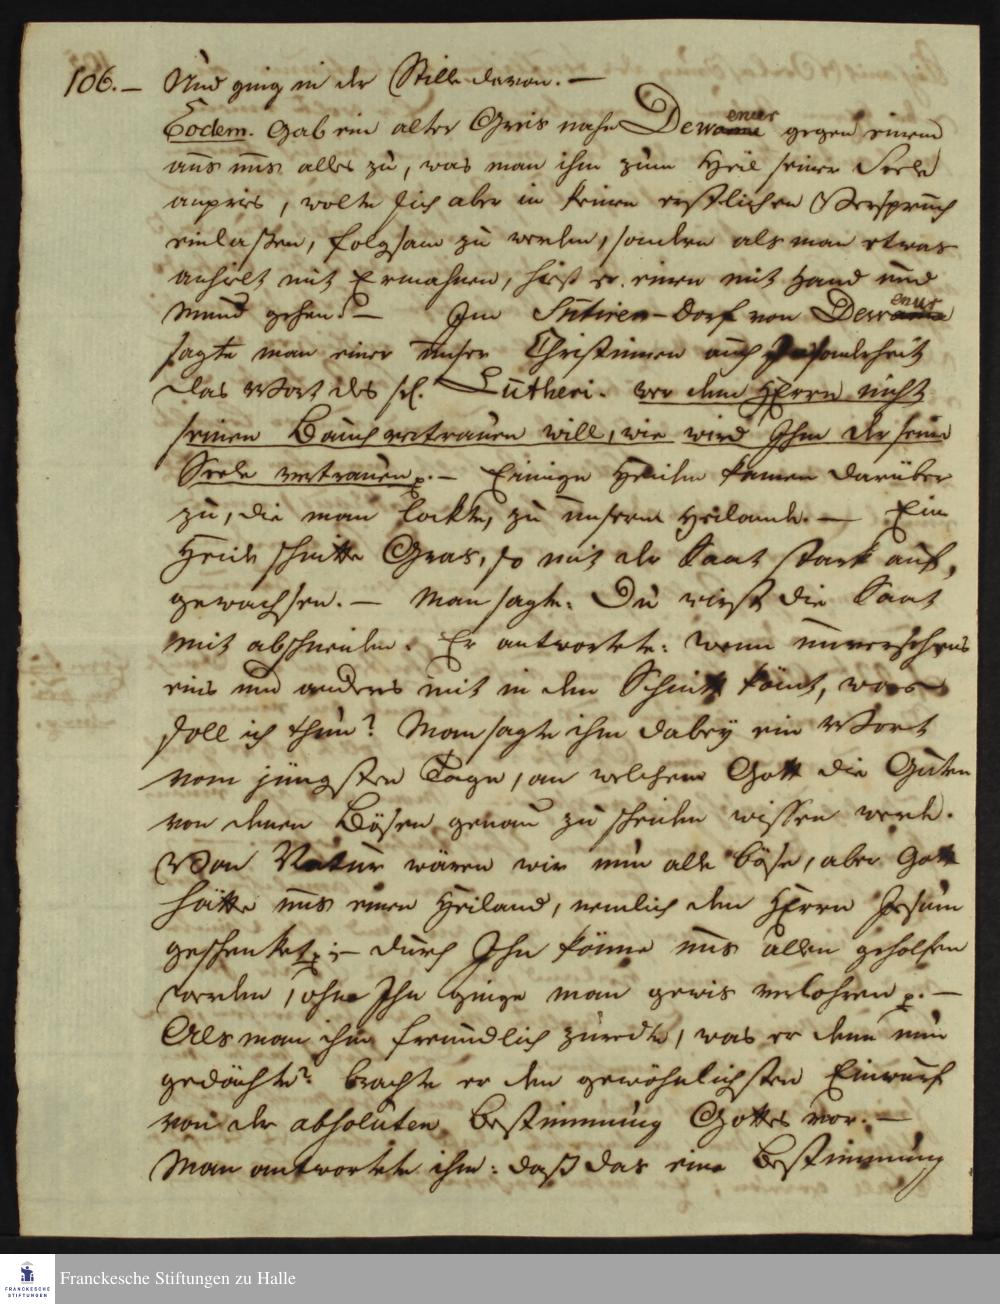 106. – Und ging in der Stille davon. –
Eodem. Gab ein alter Greis nahe Dewanne enur gegen einem
aus uns alles zu, was man ihm zum Heil seiner Seele
anpries, wolte sich aber in keinen ernstlichen Verspruch
einlaßen, folgsam zu werden, sondern als man etwas
anhielt mit Ermahnen, hieß er einen mit Hand und
Mund gehen. – Im Sutirer-Dorf von Dewanne enur
sagte man einer unser Christinnen auch
das Wort des sel. Lutheri. wer dem HErrn nicht
seinen Bauch vertrauen will, wie wird Ihm der seine
Seele vertrauen p. – Einige Heiden kamen darüber
zu, die man lockte, zu unserm Heilande. – Ein
Heide schnitte Gras, so mit der Saat stark auf,
gewachsen. – Man sagte: Du wirst die Saat
mit abschneiden. Er antwortete: wenn unversehens
eins und anders mit in den Schnitt kömt, was
soll ich thun? Man sagte ihm dabey ein Wort
vom jüngsten Tage, an welchem Gott die Guten
von denen Bösen genau zu scheiden wissen werde.
Von Natur wären wir nun alle böse, aber Gott
hätte uns einen Heiland, nemlich den HErrn Jesum
geschenket p; – durch Ihn könne uns allen geholfen
werden, ohne Ihn ginge man gewis verlohren p. –
Als man ihm freundlich zuredte, was er denn nun
gedächte? brachte er den gewöhnlichsten Einwurf
von der absoluten Bestimmung Gottes vor. –
Man antwortete ihm: daß das eine Bestimmung
FRANCKESCHE
STIFTUNGEN
Franckesche Stiftungen zu Halle